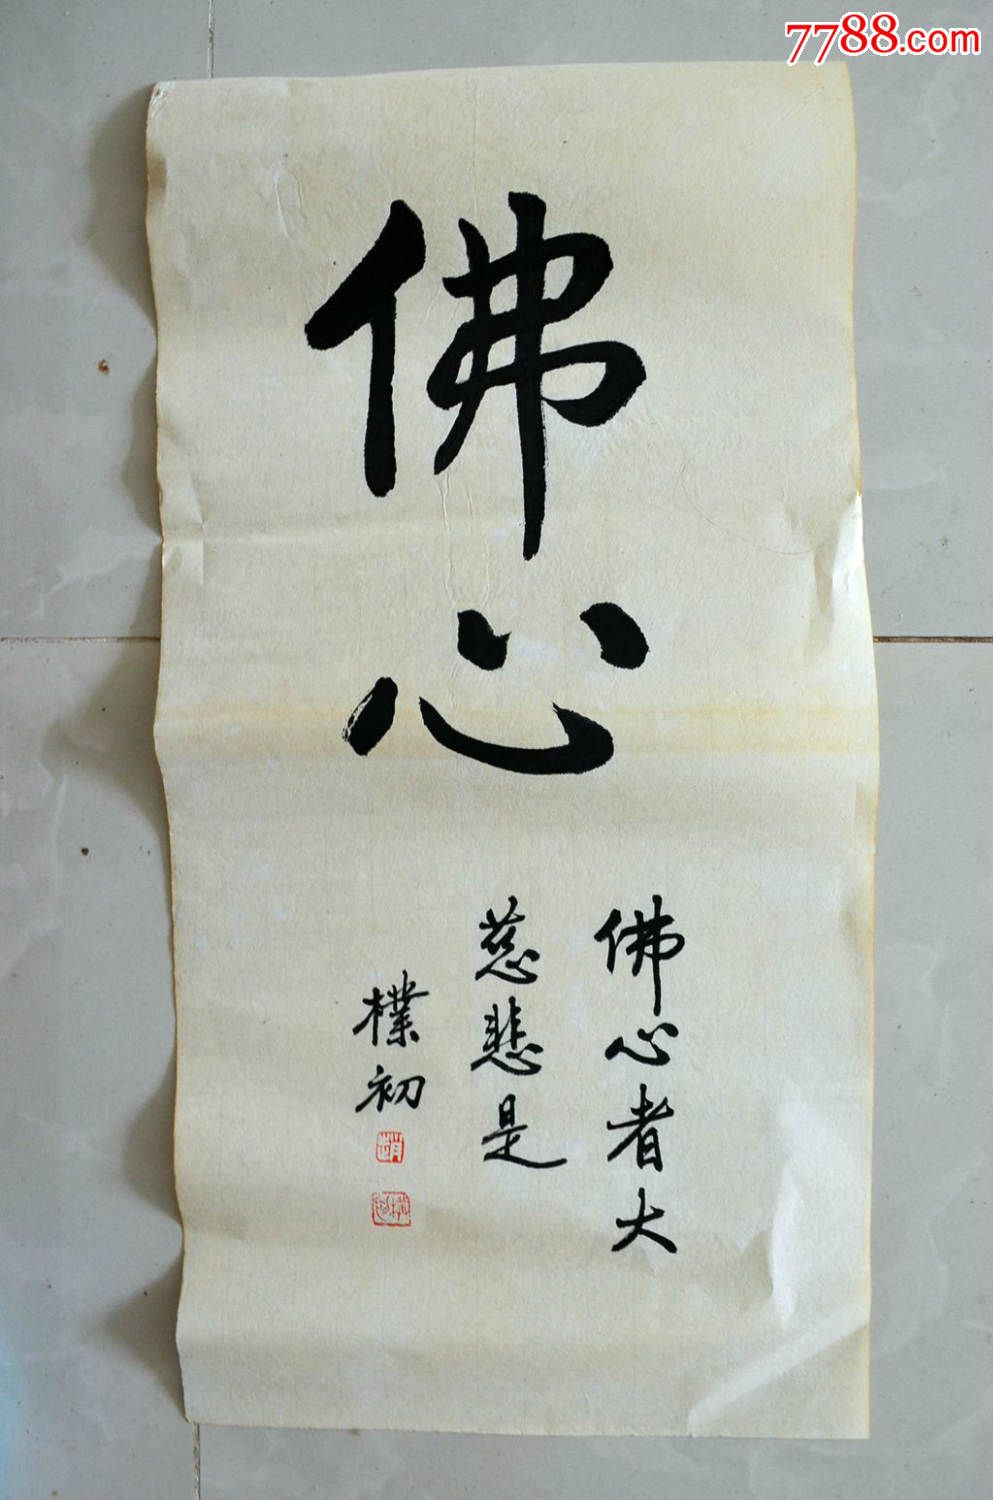 7788.com
佛心
佛心者大
慈悲是
樸初
趙
樸初